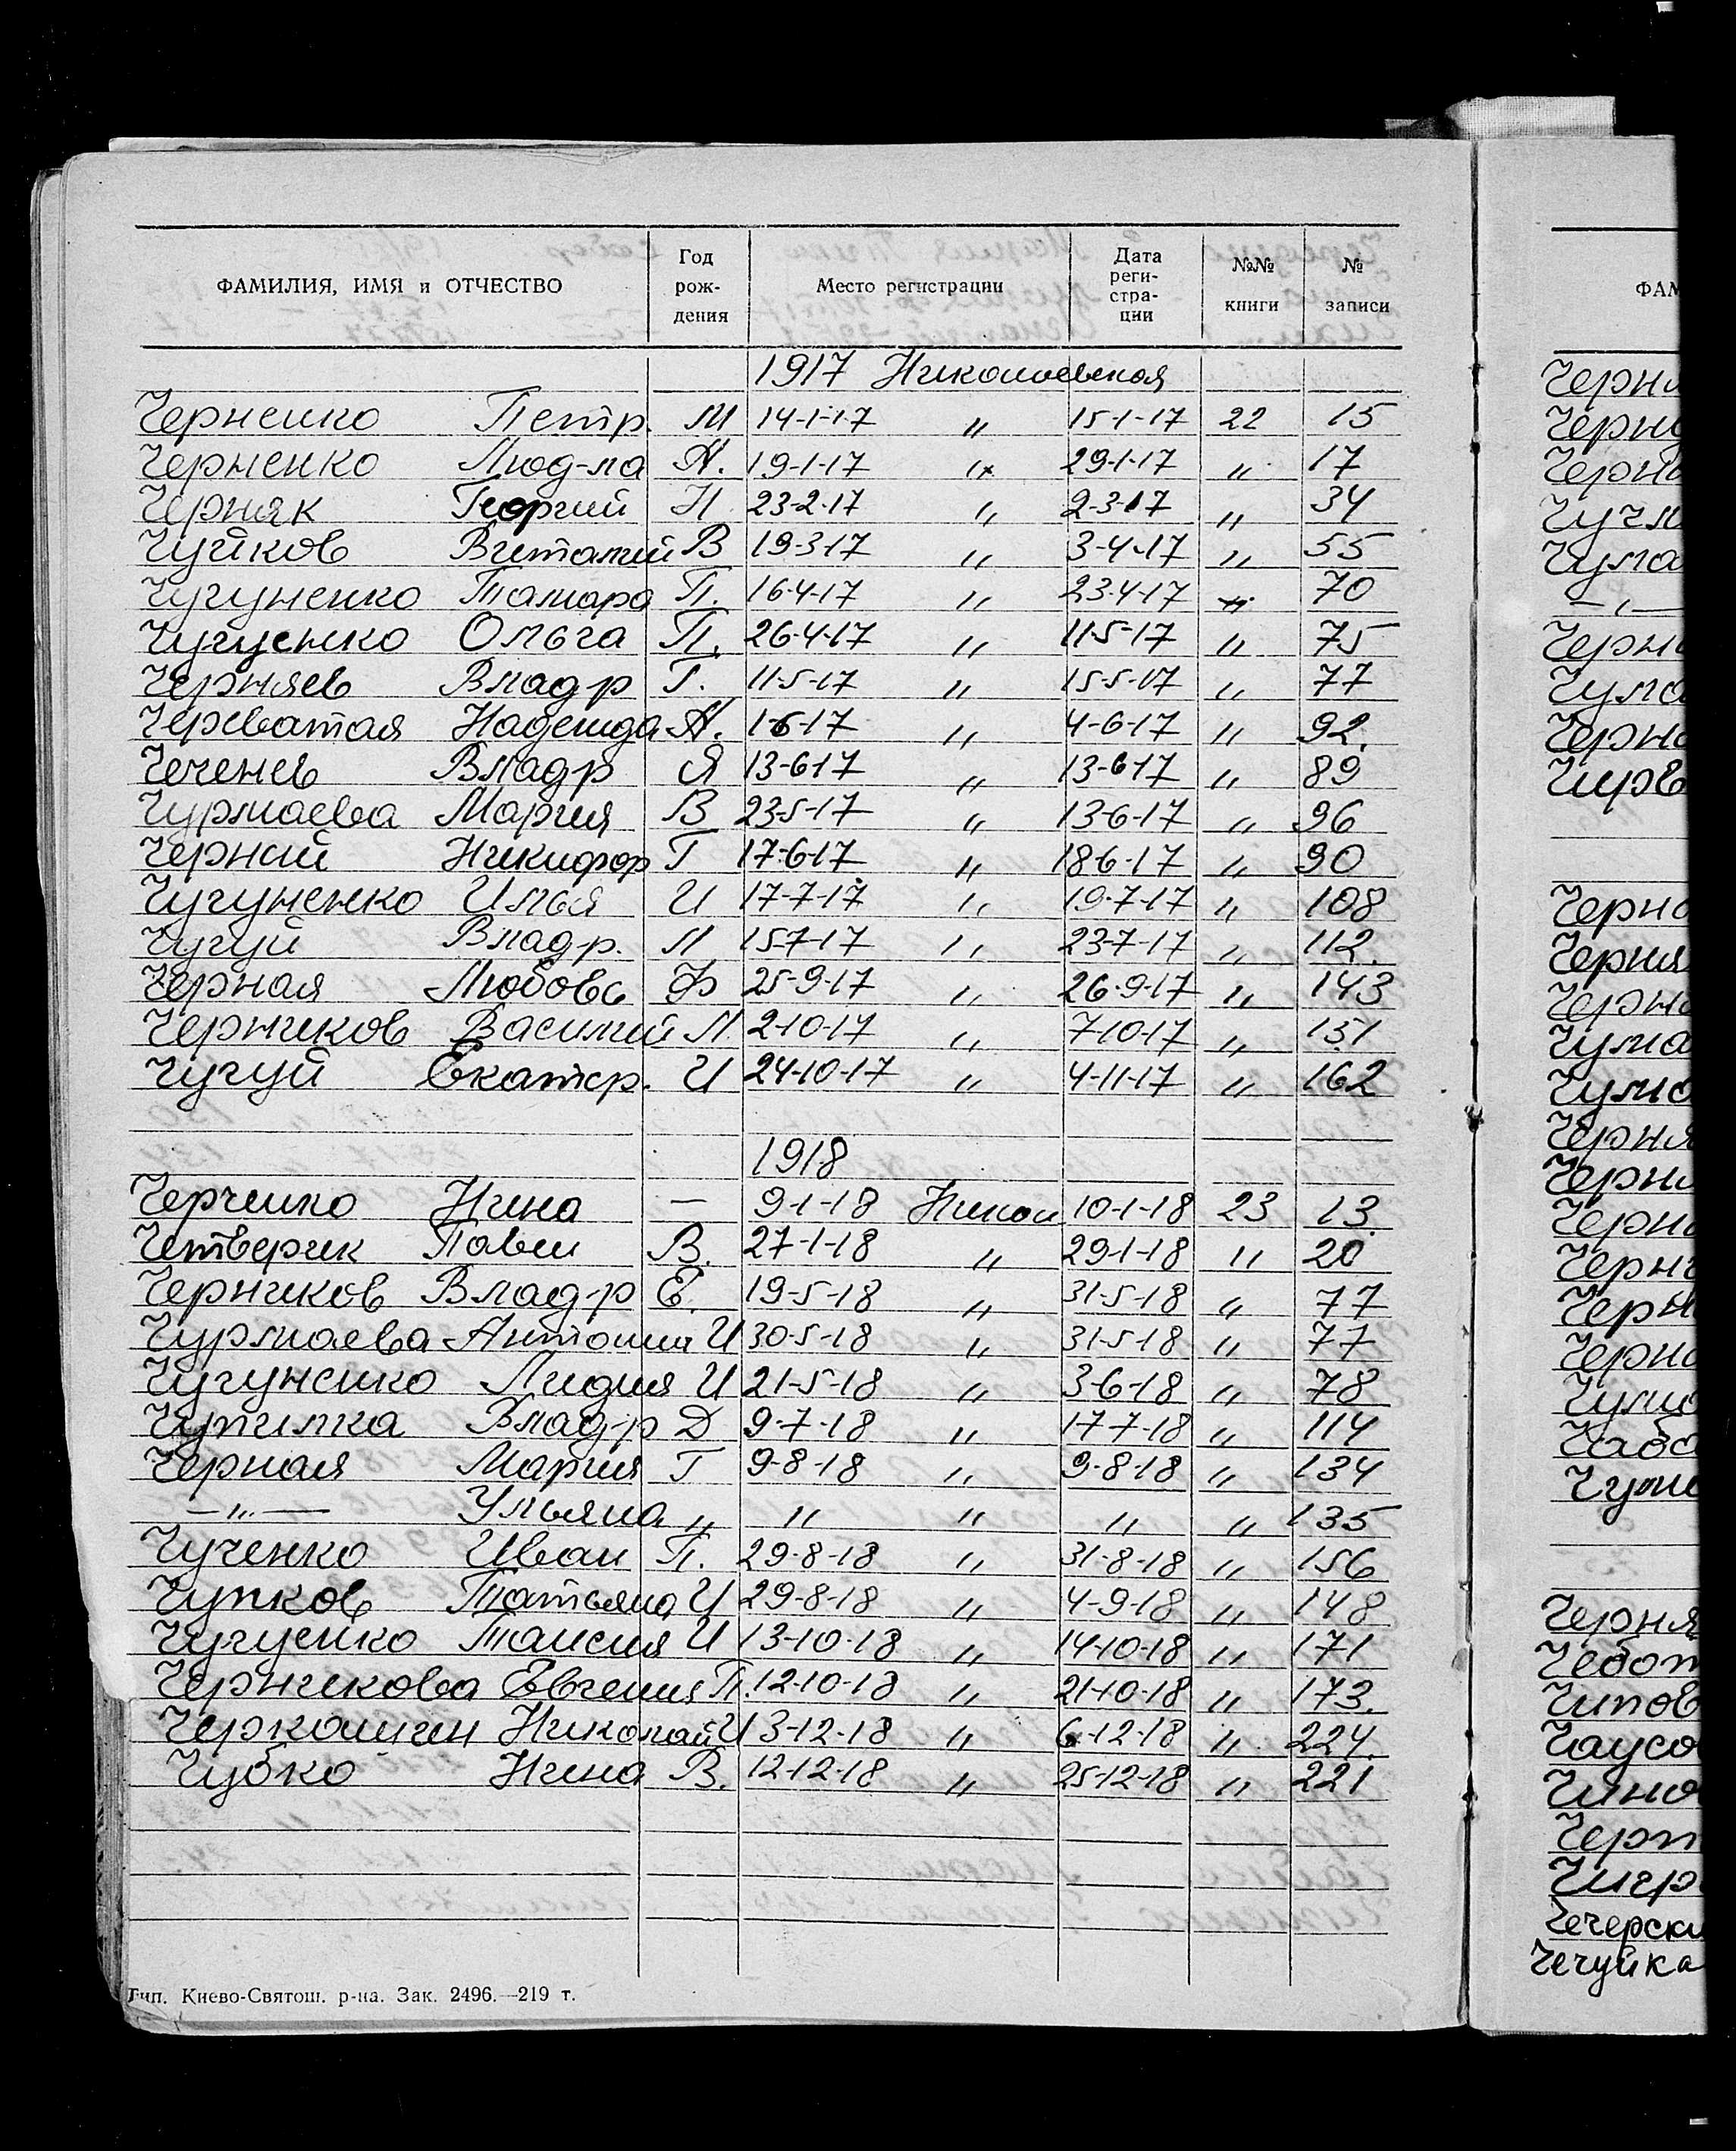 ФАМИЛИЯ, ИМЯ и ОТЧЕСТВО Год рож- дения Место регистрации Дата реги- стра- ции №№ книги № записи
1917 Николаевская
Черненко Петр. М 14-1-17 " 15-1-17 22 15
Черненко Люд-ла А. 19-1-17 " 29-1-17 " 17
Черняк Георгий Н 23-2-17 " 2-3-17 " 34
Чуйков Виталий В 19-3-17 " 3-4-17 " 55
Чугуненко Тамара П. 16-4-17 " 23-4-17 " 70
Чугуенко Ольга П. 26-4-17 " 11-5-17 " 75
Черняев Влад-р Г. 11-5-17 " 15-5-17 " 77
Череватая Надежда А. 1-6-17 " 4-6-17 " 92.
Чеченев Влад-р Я 13-6-17 " 13-6-17 " 89
Чурмаева Мария В 23-5-17 " 13-6-17 " 96
Черный Никифор Г 17-6-17 " 18-6-17 " 90
Чугуненко Илья И 17-7-17 " 19-7-17 " 108
Чугуй Влад-р. Л 15-7-17 " 23-7-17 " 112.
Черная Любовь Ф 25-9-17 " 26-9-17 " 143
Черников Василий Л. 2-10-17 " 7-10-17 " 151
Чугуй Екатер. И 24-10-17 " 4-11-17 " 162
1918
Черченко Нина — 9-1-18 Никол 10-1-18 23 13
Четверик Павел В. 27-1-18 " 29-1-18 " 20
Черников Влад-р Е. 19-5-18 " 31-5-18 " 77
Чурмаева Антонина И 30-5-18 " 31-5-18 " 77
Чугуненко Лидия И 21-5-18 " 3-6-18 " 78
Влад-р Д 9-7-18 " 17-7-18 " 114
Черная Мария Г 9-8-18 " 9-8-18 " 134
— " — Ульяна " " " " " 135
Чученко Иван П. 29-8-18 " 31-8-18 " 156
Чупков Татьяна И 29-8-18 " 4-9-18 " 148
Чугуенко Таисия И 13-10-18 " 14-10-18 " 171
Черникова Евгения П. 12-10-18 " 21-10-18 " 173.
Черкашин Николай И 3-12-18 " 6-12-18 " 224.
Чубко Нина В. 12-12-18 " 25-12-18 " 221
Тип. Киево-Святош. р-на. Зак. 2496.—219 т.
ФАМ
Чечерски
Чечуйка